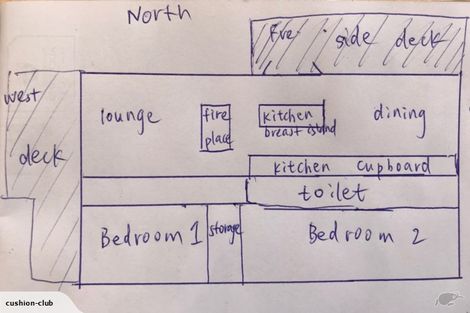 North
Eve side deck
west
deck
lounge
fire
place
kitchen
breast island
dining
kitchen cupboard
toilet
Bedroom 1
storage
Bedroom 2
cushion-club